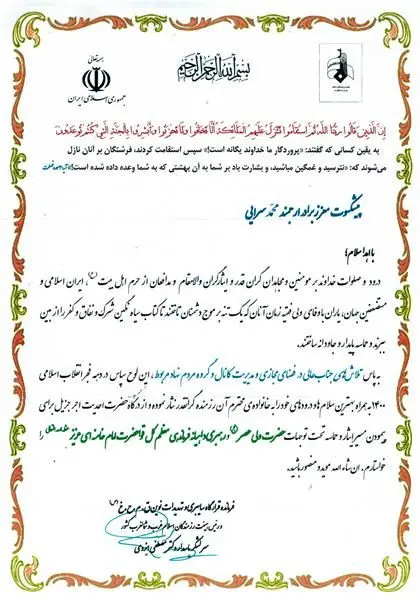 بسمه تعالی
جمهوری اسلامی ایران
بسم الله الرحمن الرحیم
إِنَّ الَّذِينَ قَالُوا رَبُّنَا اللَّهُ ثُمَّ اسْتَقَامُوا تَتَنَزَّلُ عَلَيْهِمُ الْمَلَائِكَةُ أَلَّا تَخَافُوا وَلَا تَحْزَنُوا وَأَبْشِرُوا بِالْجَنَّةِ الَّتِي كُنْتُمْ تُوعَدُونَ
به یقین کسانی که گفتند: «پروردگار ما خداوند یگانه است!» سپس استقامت کردند، فرشتگان بر آنان نازل
می‌شوند که: «نترسید و غمگین مباشید، و بشارت باد بر شما به آن بهشتی که به شما وعده داده شده است!»
پیشکسوت معزز برادر ارجمند محمد سرابی
با اهداء سلام؛
درود و صلوات خداوند بر مومنین و مجاهدان گران قدر و ایثارگران والامقام و مدافعان از حرم اهل بیت (ع)، ایران اسلامی و
مستضعفین جهان، یاران باوفای ولی فقیه زمان آنان که یک تنه بر موج دشمنان تاختند تا کتاب سیاه ننگین شرک و نفاق و کفر را از بین
ببرند و حماسه پایدار و جاودانه ساختند.
به پاس تلاش‌های جنابعالی در فضای مجازی و مدیریت کانال و گروه مردم نهاد مربوط، این لوح سپاس در دهه فجر انقلاب اسلامی
۱۴۰۰ به همراه بهترین سلام‌ها و درودهای خود را به خانواده‌ی محترم آن رزمنده گرانقدر نثار نموده و از درگاه حضرت احدیت اجر جزیل برای
پیمودن مسیر ایثار و حماسه تحت توجهات حضرت ولی عصر (عج) و رهبری داهیانه فرماندهی معظم کل قوا حضرت امام خامنه ای عزیز را
خواستارم. ان شاء الله موید و منصور باشید.
فرمانده قرارگاه سایبری و تهدیدات نوین
و رئیس هیئت رزمندگان اسلام غرب و شمالغرب کشور
سرلشکر پاسدار دکتر مصطفی ایزدی